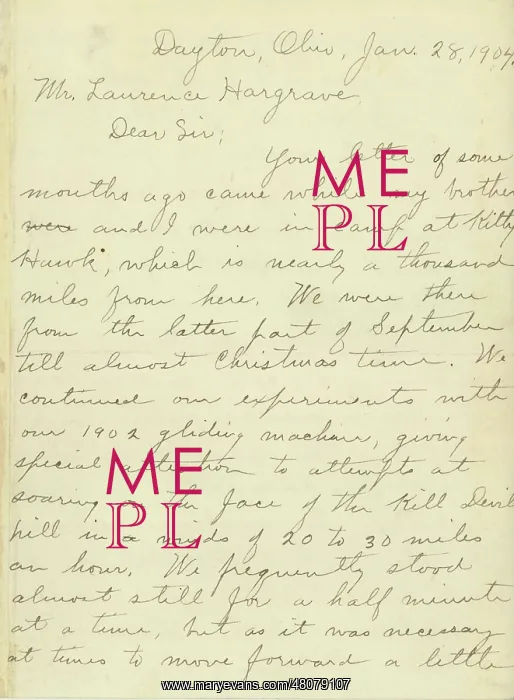 Dayton, Ohio, Jan. 28, 1904.
Mr. Laurence Hargrave,
Dear Sir;
Your letter of some
months ago came while my brother
were and I were in camp at Kitty
Hawk, which is nearly a thousand
miles from here. We were there
from the latter part of September
till almost Christmas time. We
continued our experiments with
our 1902 gliding machine, giving
special attention to attempts at
soaring on the face of the Kill Devil
hill in winds of 20 to 30 miles
an hour. We frequently stood
almost still for a half minute
at a time, but as it was necessary
at times to move forward a little
ME
PL
ME
PL
www.maryevans.com/48079107